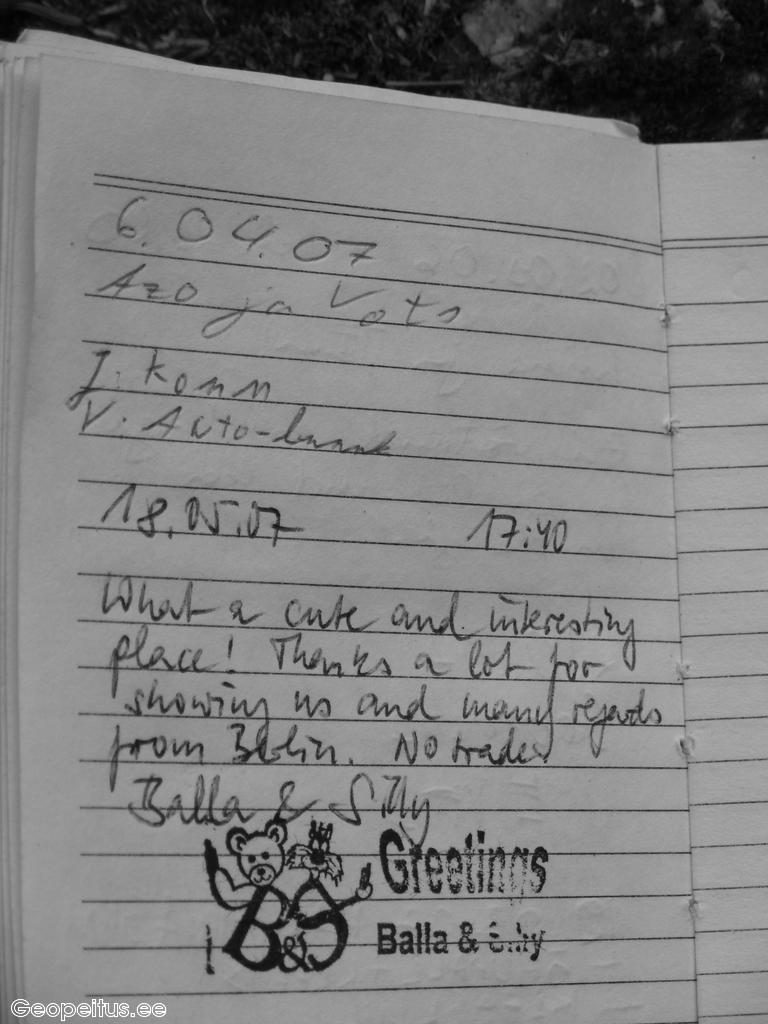 6.04.07
Azo ja Vots
J: Komm
V: Auto-kumk
18.05.07 17:40
What a cute and interesting
place! Thanks a lot for
showing us and many regards
from Berlin. No trade
Balla & Silly
Greetings
B&S
Balla & Silly
Geopeitus.ee